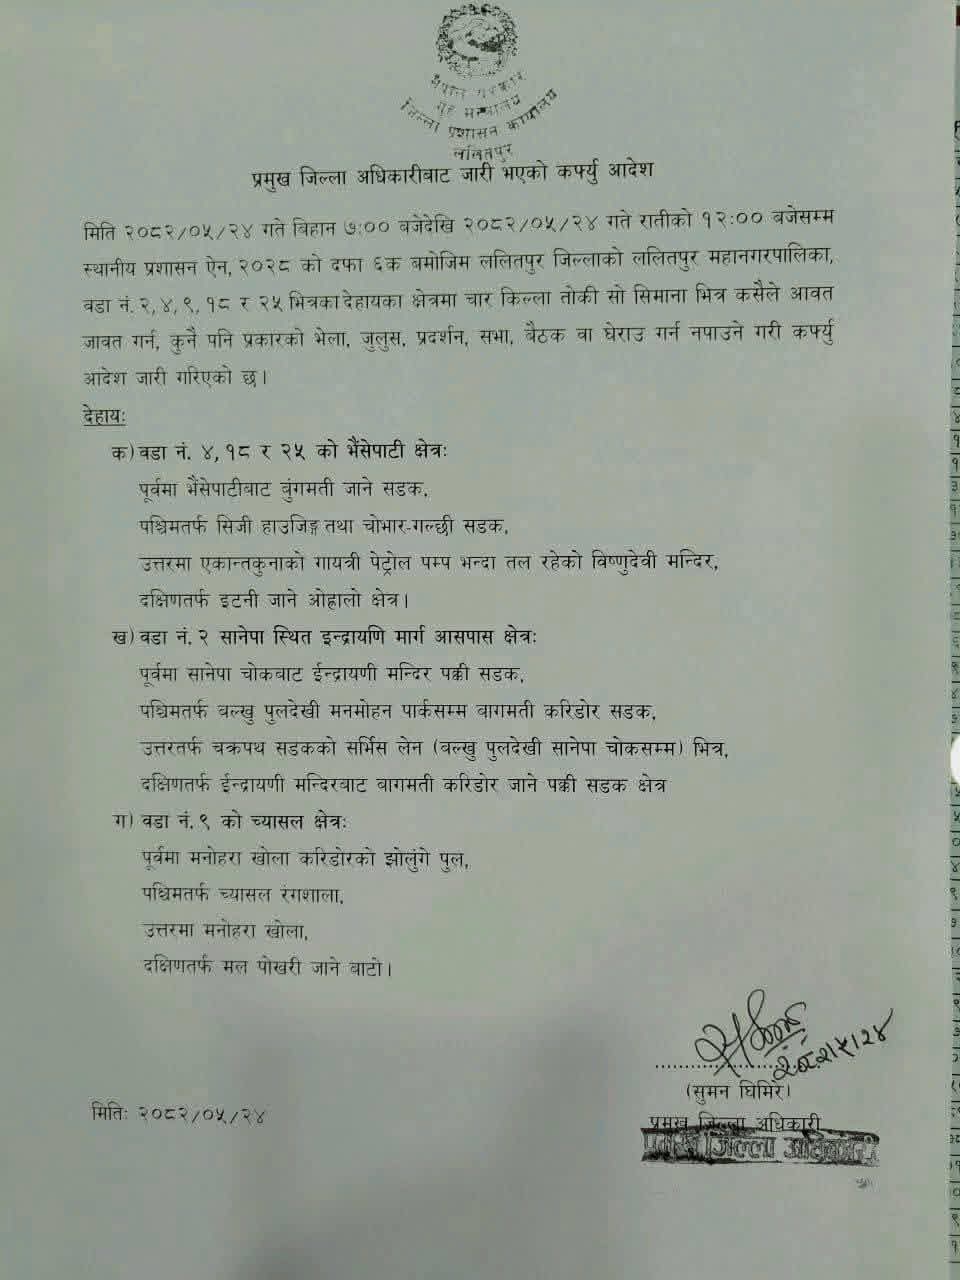 नेपाल सरकार
गृह मन्त्रालय
जिल्ला प्रशासन कार्यालय
ललितपुर
प्रमुख जिल्ला अधिकारीबाट जारी भएको कर्फ्यु आदेश
मिति २०८२/०५/२४ गते बिहान ७:०० बजेदेखि २०८२/०५/२४ गते रातीको १२:०० बजेसम्म
स्थानीय प्रशासन ऐन, २०२८ को दफा ६क बमोजिम ललितपुर जिल्लाको ललितपुर महानगरपालिका,
वडा नं. २, ४, ९, १८ र २५ भित्रका देहायका क्षेत्रमा चार किल्ला तोकी सो सिमाना भित्र कसैले आवत
जावत गर्न, कुनै पनि प्रकारको भेला, जुलुस, प्रदर्शन, सभा, बैठक वा घेराउ गर्न नपाउने गरी कर्फ्यु
आदेश जारी गरिएको छ।
देहायः
क) वडा नं. ४, १८ र २५ को भैंसेपाटी क्षेत्रः
पूर्वमा भैंसेपाटीबाट बुंगमती जाने सडक,
पश्चिमतर्फ सिजी हाउजिङ्ग तथा चोभार-गल्छी सडक,
उत्तरमा एकान्तकुनाको गायत्री पेट्रोल पम्प भन्दा तल रहेको विष्णुदेवी मन्दिर,
दक्षिणतर्फ इटनी जाने ओह्रालो क्षेत्र।
ख) वडा नं. २ सानेपा स्थित इन्द्रायणि मार्ग आसपास क्षेत्रः
पूर्वमा सानेपा चोकबाट ईन्द्रायणी मन्दिर पक्की सडक,
पश्चिमतर्फ बल्खु पुलदेखी मनमोहन पार्कसम्म बागमती करिडोर सडक,
उत्तरतर्फ चक्रपथ सडकको सर्भिस लेन (बल्खु पुलदेखी सानेपा चोकसम्म) भित्र,
दक्षिणतर्फ ईन्द्रायणी मन्दिरबाट बागमती करिडोर जाने पक्की सडक क्षेत्र
ग) वडा नं. ९ को च्यासल क्षेत्रः
पूर्वमा मनोहरा खोला करिडोरको झोलुंगे पुल,
पश्चिमतर्फ च्यासल रंगशाला,
उत्तरमा मनोहरा खोला,
दक्षिणतर्फ मल पोखरी जाने बाटो।
२०८२।५।२४
(सुमन घिमिरे)
मितिः २०८२/०५/२४
प्रमुख जिल्ला अधिकारी
प्रमुख जिल्ला अधिकारी